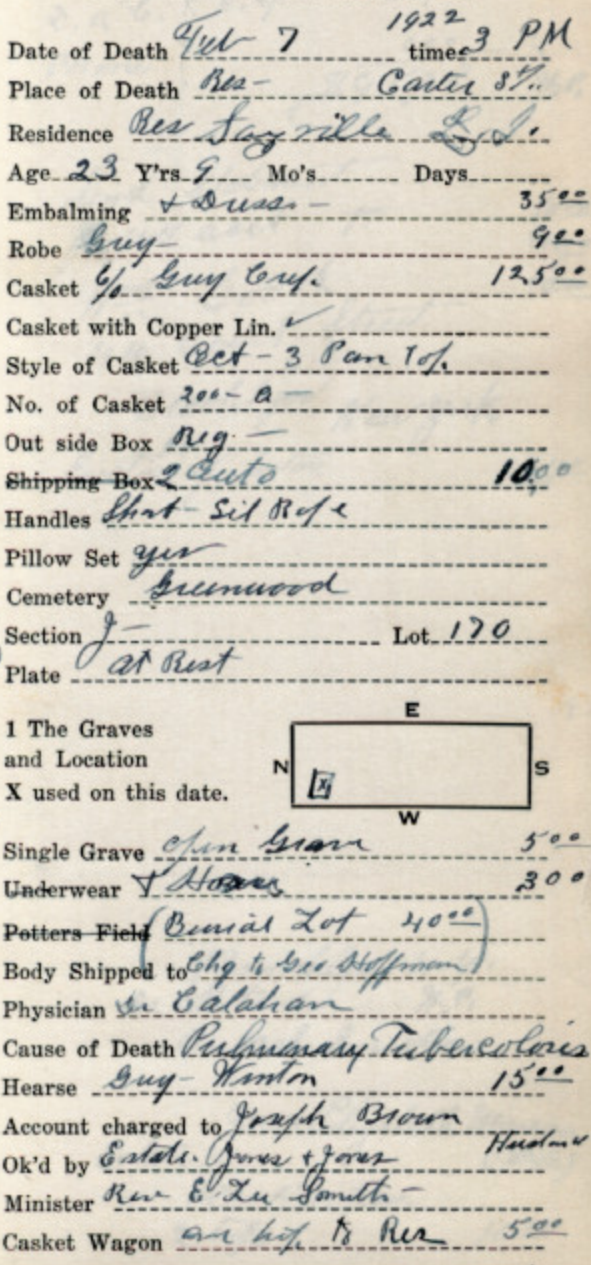 Date of Death Feb 7 1922 time 3 PM
Place of Death Res- Carter St.
Residence Res Sayville L.I.
Age 23 Y'rs 9 Mo's Days
Embalming & Dress - 35 00
Robe Grey- 9 00
Casket 6/0 Grey Crep. 125 00
Casket with Copper Lin. ✓
Style of Casket Oct - 3 Pan Top.
No. of Casket 200 - a -
Out side Box Reg. -
Shipping Box 2 Auto 10.00
Handles Short - Sil Rope
Pillow Set yes
Cemetery Greenwood
Section J - Lot 170
Plate at Rest
E
1 The Graves
and Location
X used on this date.
N X S
W
Single Grave Open Grave 5 00
Underwear & Hose 3 00
Potters Field (Burial Lot 40 00
Body Shipped to Chg to Geo Hoffman)
Physician Dr Calahan
Cause of Death Pulmonary Tubercolosis
Hearse Grey- Winton 15 00
Account charged to Joseph Brown
Husband
Ok'd by Estate. Jones & Jones
Minister Rev E Lee Smith -
Casket Wagon to Res 5 00